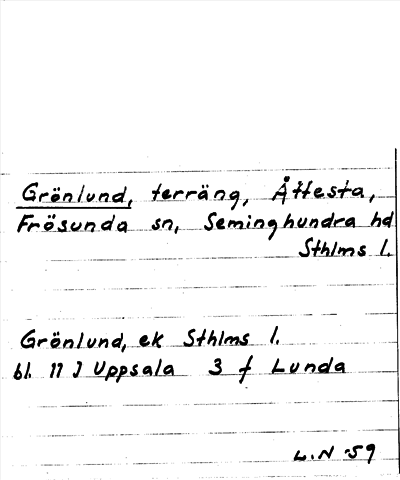 Grönlund, terräng, Åttesta,
Frösunda sn, Seminghundra hd
Sthlms l.
Grönlund, ek Sthlms l.
bl. 11 J Uppsala 3 f Lunda
L.N -59